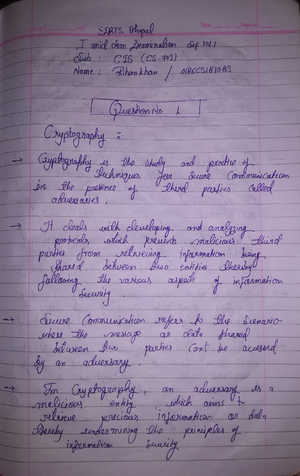 SIRTS Bhopal
I mid Sem Examination Sep 2021
Sub : CIS (CS-703)
Name : khan /
Question No. 1
Cryptography :-
→ Cryptography is the study and practice of
techniques for secure communication
in the presence of third parties called
adversaries.
→ It deals with developing and analyzing
protocols which prevents malicious third
parties from retrieving information being
shared between two entities thereby
following the various aspect of information
security
→ Secure Communication refers to the scenario
where the message or data shared
between two parties can't be accessed
by an adversary.
→ In Cryptography, an adversary is a
malicious entity, which aims to
retrieve precious information or data
thereby undermining the principles of
information security